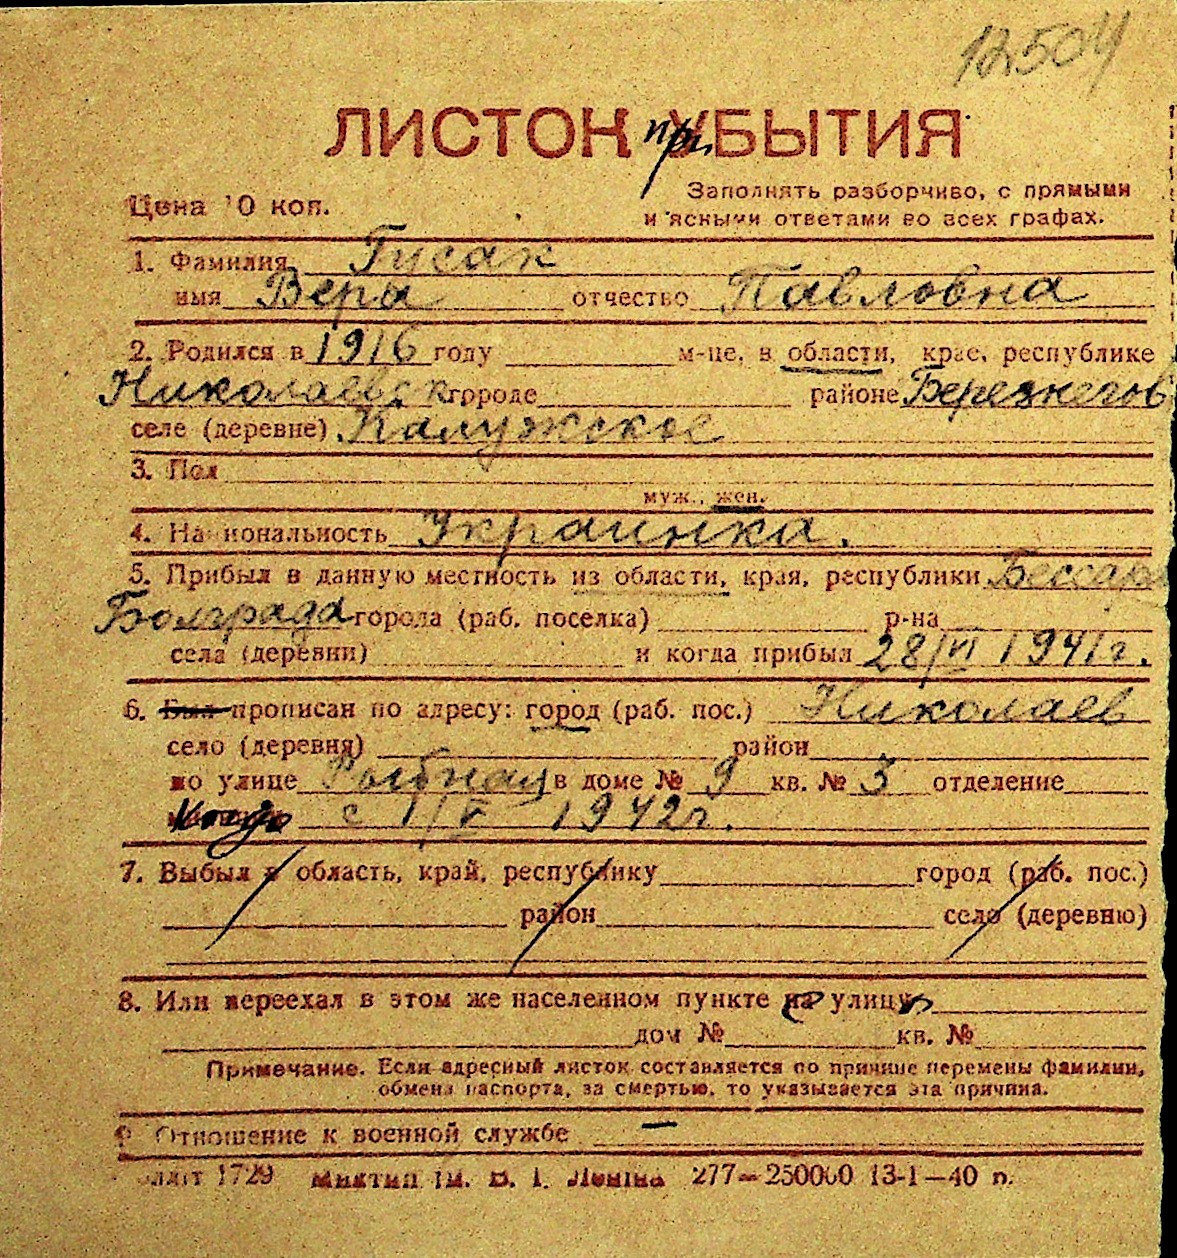 12504
ЛИСТОК при УБЫТИЯ
Цена 10 коп.
Заполнять разборчиво, с прямыми
и ясными ответами во всех графах.
1. Фамилия Гусак
имя Вера отчество Павловна
2. Родился в 1916 году м-це, в области, крае, республике
Николаевск городе районе Березнегов
селе (деревне) Калужское
3. Пол
муж., жен.
4. Национальность Украинка.
5. Прибыл в данную местность из области, края, республики Бессараб
Болграда города (раб. поселка) р-на
села (деревни) и когда прибыл 28/VI 1941г.
6. Был прописан по адресу: город (раб. пос.) Николаев
село (деревня) район
по улице Рыбная в доме № 9 кв. № 3 отделение
Когда с 1/V 1942г.
7. Выбыл в область, край, республику город (раб. пос.)
район село (деревню)
8. Или переехал в этом же населенном пункте на с улицу
дом № кв. №
Примечание. Если адресный листок составляется по причине перемены фамилии,
обмена паспорта, за смертью, то указывается эта причина.
9. Отношение к военной службе —
1729 ім. В. І. Леніна 277—250000 13-1—40 п.